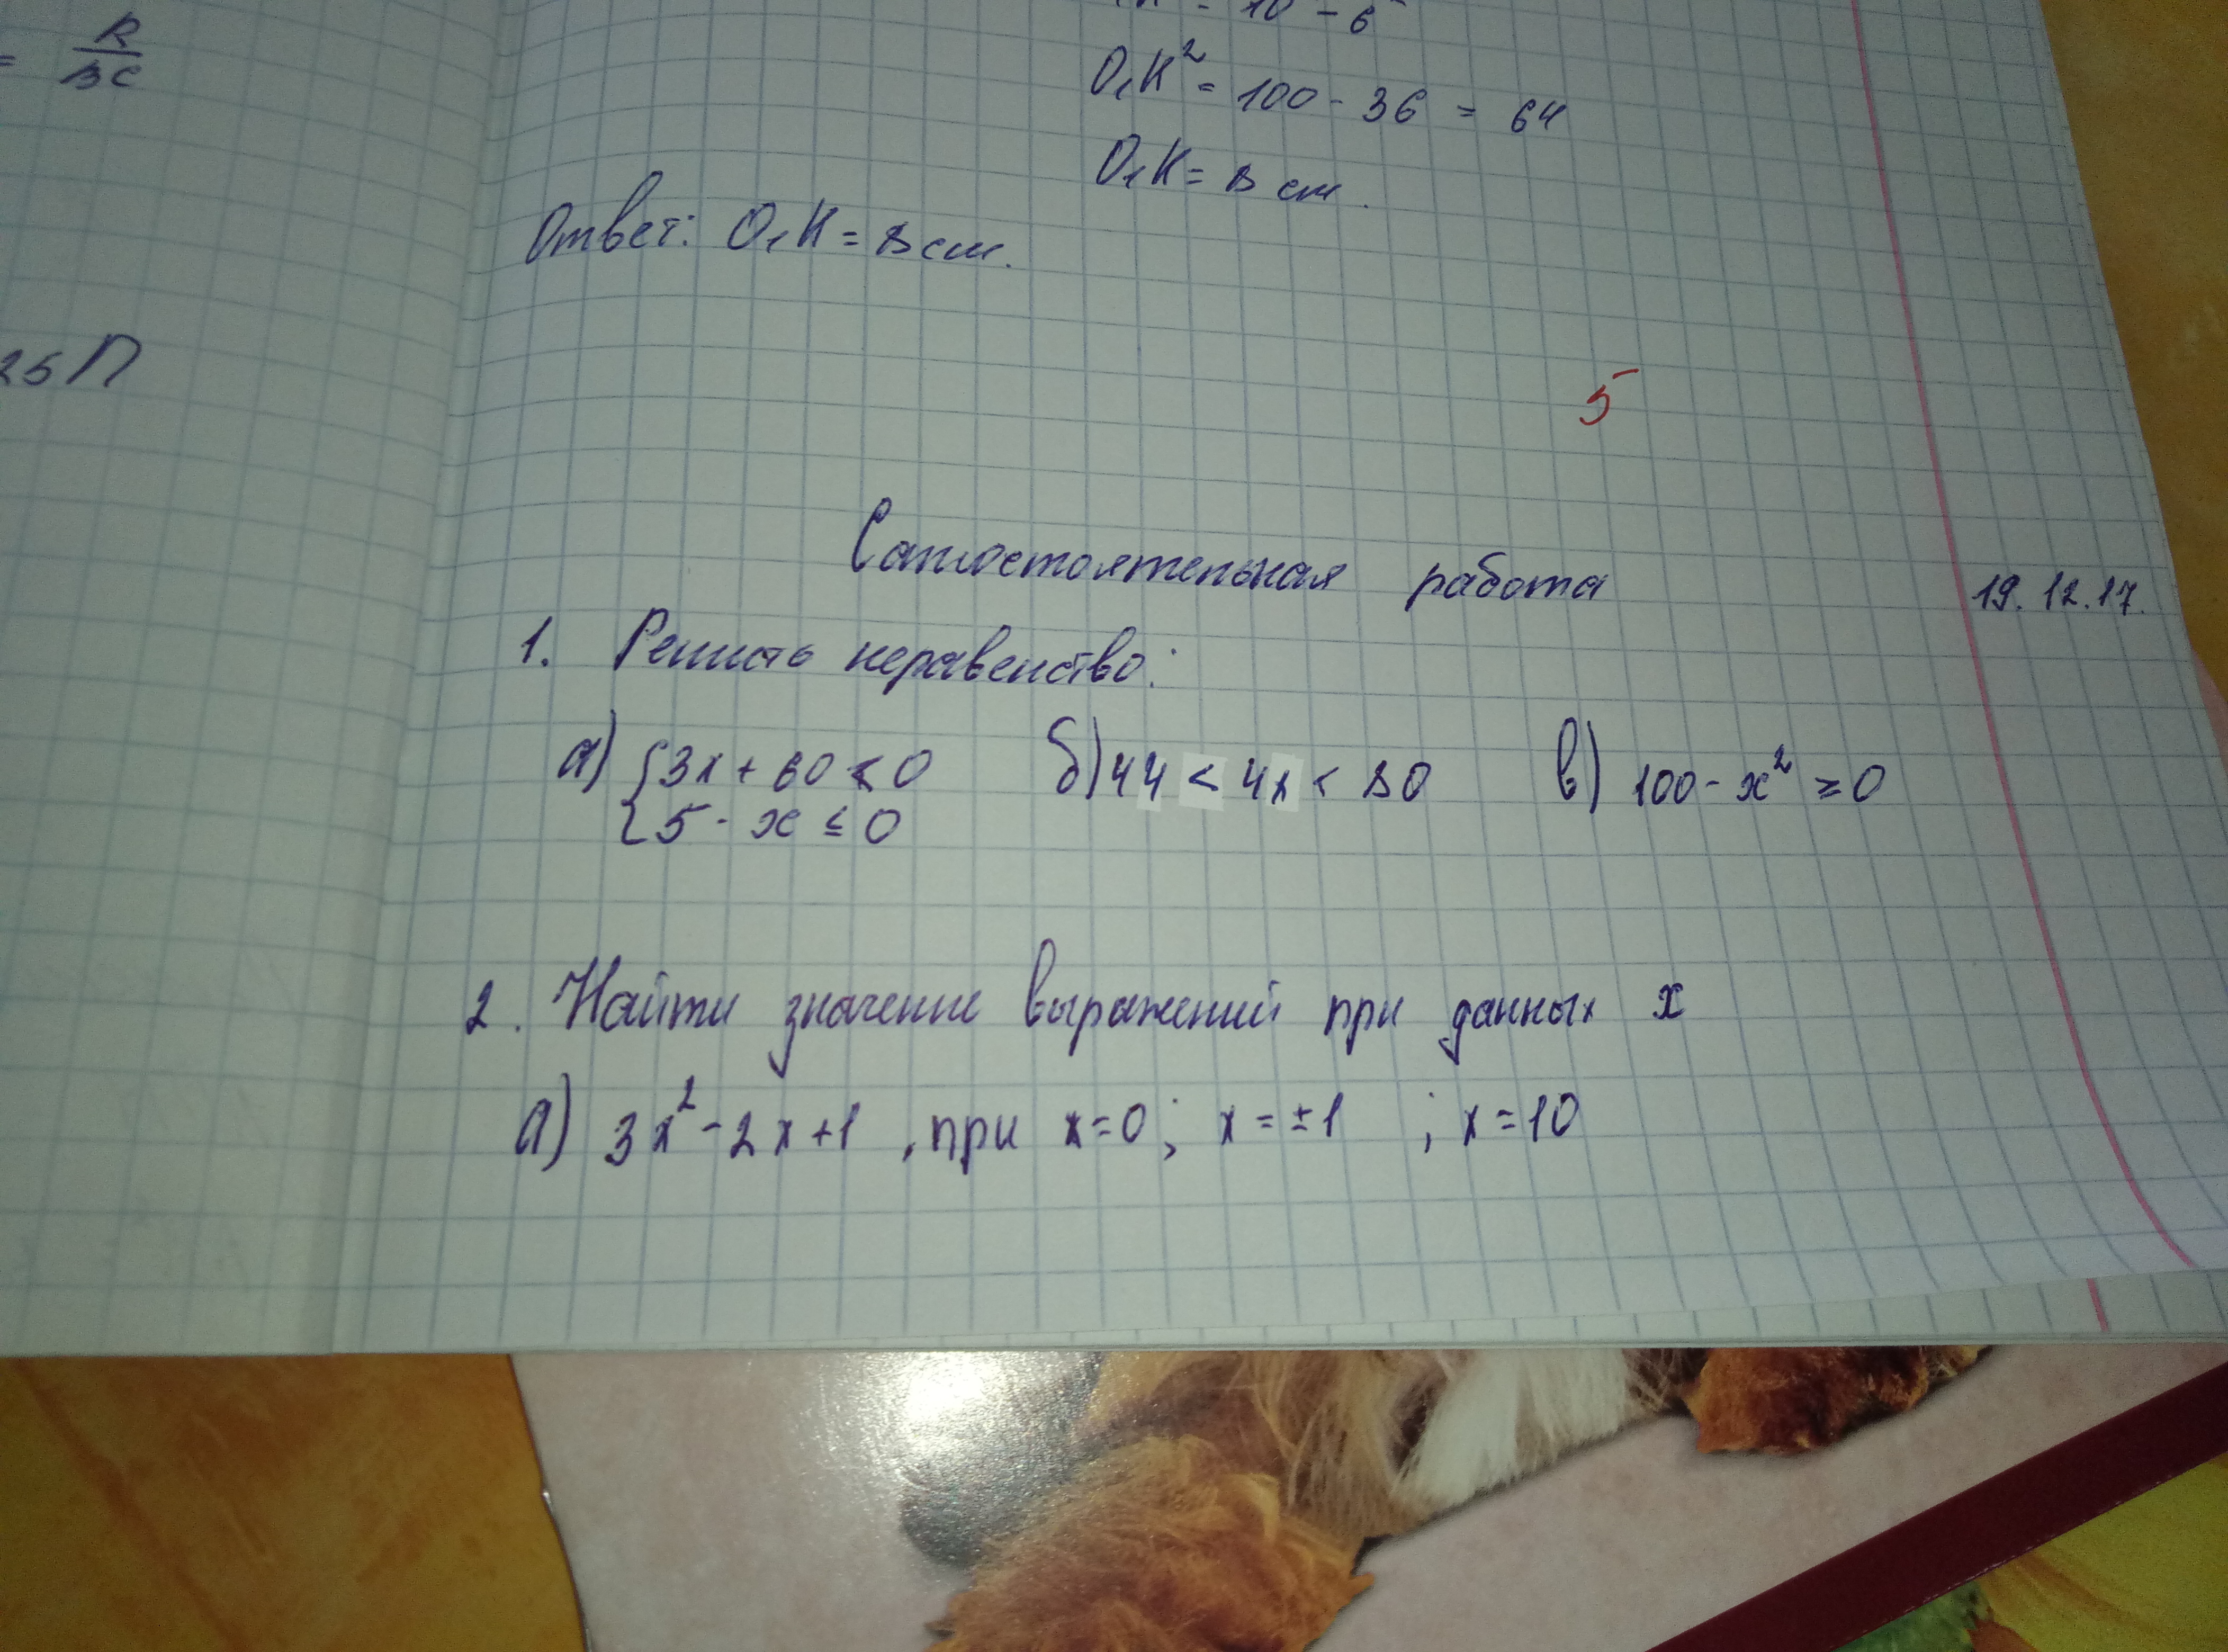 = R
BC
25П
O₁K² = 100 - 36 = 64
O₁K = 8 см.
Ответ: O₁K = 8 см.
5
Самостоятельная работа
19.12.17.
1. Решить неравенство:
а) {3x + 60 < 0 б) 44 < 4x < 80 в) 100 - x² ≥ 0
{5 - x ≤ 0
2. Найти значение выражений при данных x
а) 3x² - 2x + 1, при x = 0; x = ±1 ; x = 10